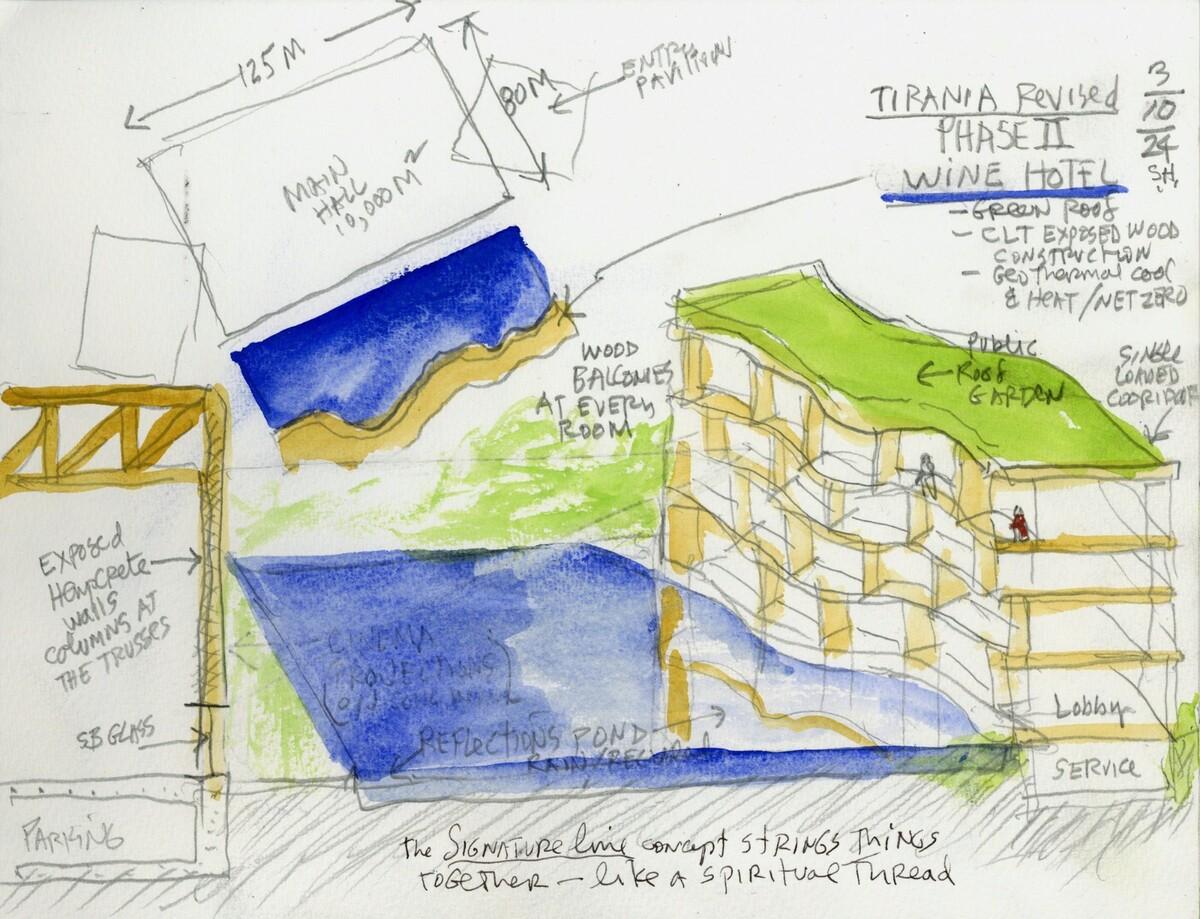 125 M
80 M
ENTRY
PAVILION
MAIN
HALL
10,000 M²
TIRANIA REVISED
PHASE II
WINE HOTEL
3/10/24
SH,
- GREEN ROOF
- CLT EXPOSED WOOD
CONSTRUCTION
- GEOTHERMAL COOL
& HEAT/NET ZERO
WOOD
BALCONIES
AT EVERY
ROOM
PUBLIC
ROOF
GARDEN
SINGLE
LOADED
COORIDOR
EXPOSED
HEMPCRETE
WALLS
COLUMNS AT
THE TRUSSES
SB GLASS
PARKING
CINEMA
PROJECTIONS
REFLECTIONS POND
RAIN/
Lobby
SERVICE
the SIGNATURE line concept STRINGS THINGS
TOGETHER – like A SPIRITUAL THREAD